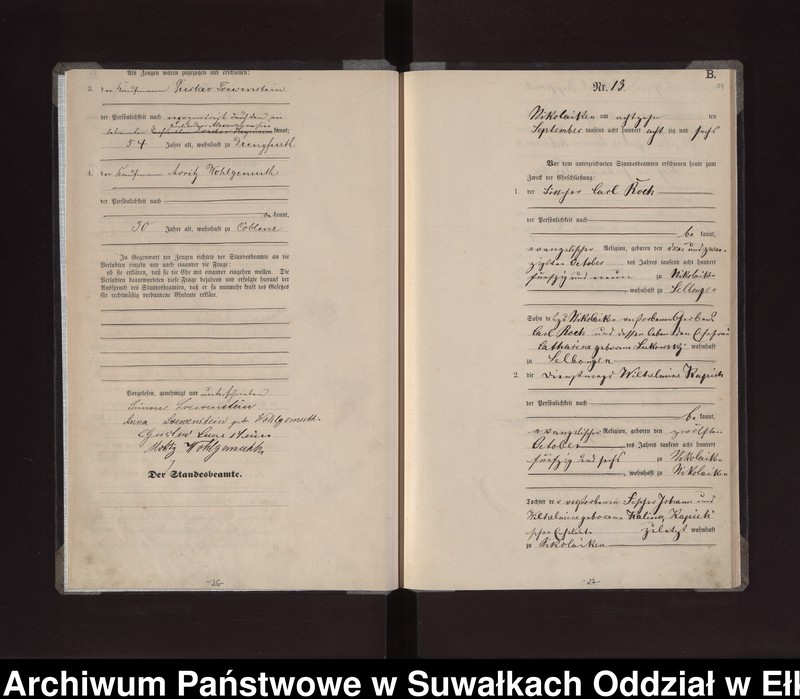 Als Zeugen waren zugezogen und erschienen:
3. der Kaufmann Gustav Loewenstein
der Persönlichkeit nach
kannt,
54 Jahre alt, wohnhaft zu Drengfurth
4. der Kaufmann Moritz Wohlgemuth
der Persönlichkeit nach
be kannt,
30 Jahre alt, wohnhaft zu Coblenz
In Gegenwart der Zeugen richtete der Standesbeamte an die
Verlobten einzeln und nach einander die Frage:
ob sie erklären, daß sie die Ehe mit einander eingehen wollen. Die
Verlobten beantworteten diese Frage bejahend und erfolgte hierauf der
Ausspruch des Standesbeamten, daß er sie nunmehr kraft des Gesetzes
für rechtmäßig verbundene Eheleute erkläre.
Vorgelesen, genehmigt und unterschrieben
Simon Loewenstein
Anna Loewenstein geb. Wohlgemuth.
Gustav Loewenstein
Moritz Wohlgemuth
Der Standesbeamte.
-26-
B.
Nr. 13.
Nikolaiken am achtzehn ten
September tausend acht hundert acht zig und sechs
Vor dem unterzeichneten Standesbeamten erschienen heute zum
Zweck der Eheschließung:
1. der Fischer Carl Koch
der Persönlichkeit nach
be kannt,
evangelischer Religion, geboren den drei und zwan-
zigsten October des Jahres tausend acht hundert
fünfzig und neun zu Nikolaiken
, wohnhaft zu Selbongen
Sohn des zu Nikolaiken verstorbenen Gerbers
Carl Koch und dessen lebenden Ehefrau
Catharina geborene Lukowsky wohnhaft
zu Selbongen
2. die Dienstmagd Wilhelmine Kapich
der Persönlichkeit nach
be kannt,
evangelischer Religion, geboren den zwölften
October des Jahres tausend acht hundert
fünfzig und sechs zu Nikolaiken
, wohnhaft zu Nikolaiken
Tochter der verstorbenen Fischer Johann und
Wilhelmine geborene Kalinna Kapich
schen Eheleute zuletzt wohnhaft
zu Nikolaiken
-27-
Archiwum Państwowe w Suwałkach Oddział w Ełk